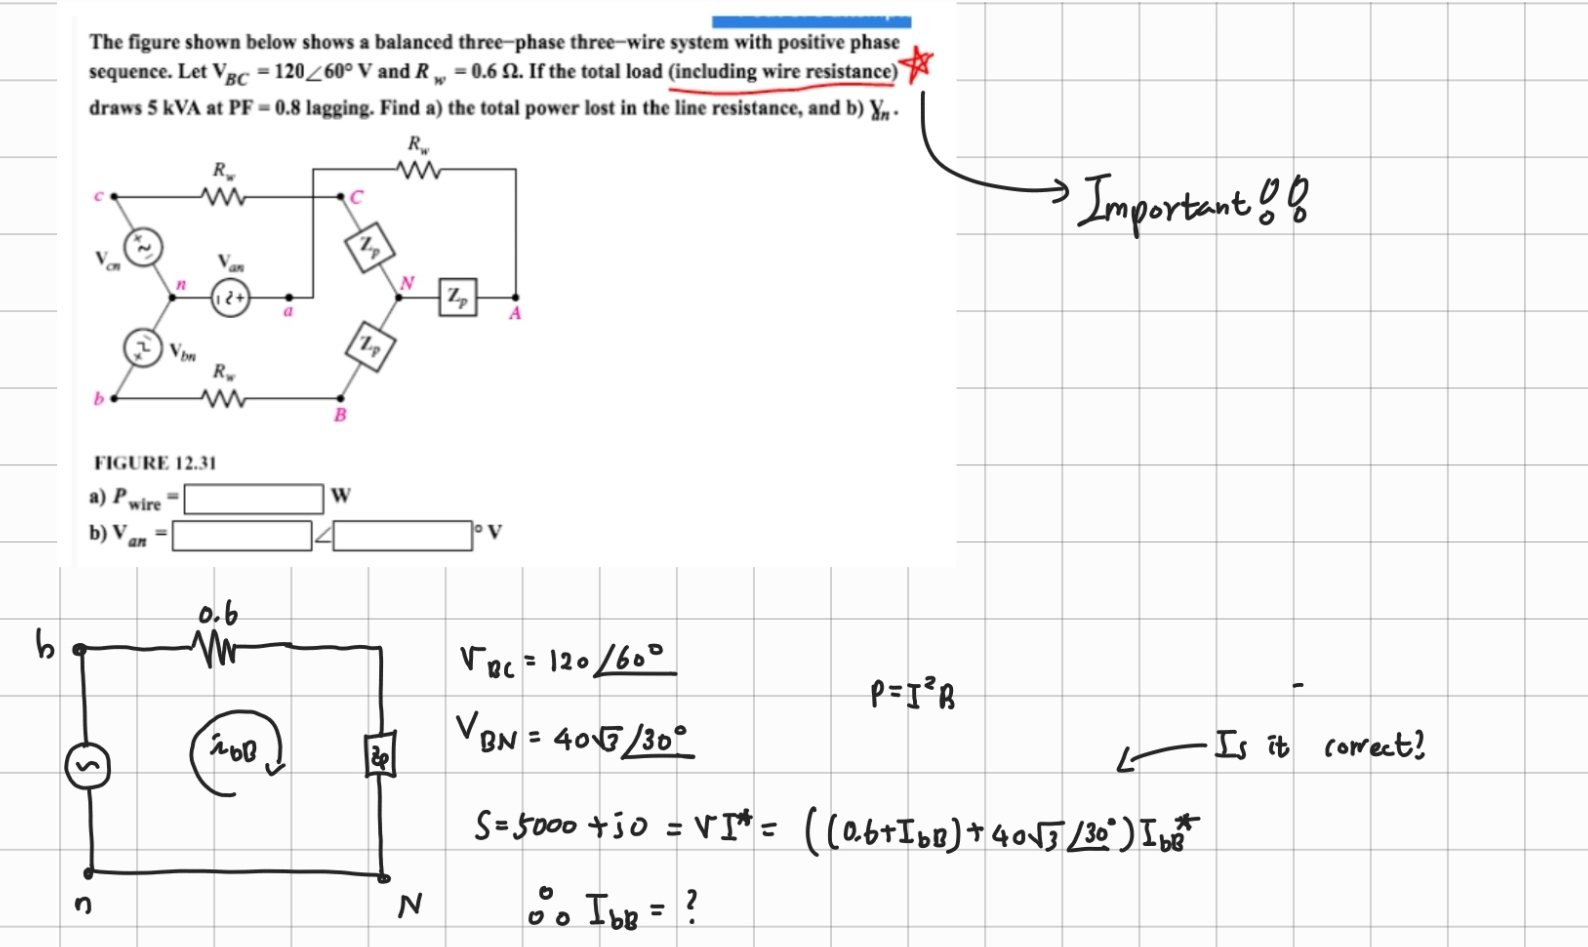 The figure shown below shows a balanced three-phase three-wire system with positive phase
sequence. Let V_BC = 120∠60° V and R_w = 0.6 Ω. If the total load (including wire resistance)
draws 5 kVA at PF = 0.8 lagging. Find a) the total power lost in the line resistance, and b) V_an.
Important!!
R_w
R_w
c
C
Z_p
V_cn
V_an
n
N
Z_p
a
A
V_bn
Z_p
R_w
b
B
FIGURE 12.31
a) P_wire = W
b) V_an = ∠ ° V
0.6
b
V_BC = 120∠60°
P=I²R
V_BN = 40√3∠30°
i_bB
Zp
Is it correct?
S=5000+j0 = VI* = ((0.6+I_bB)+40√3∠30°)I_bB*
n
N
∴ I_bB = ?